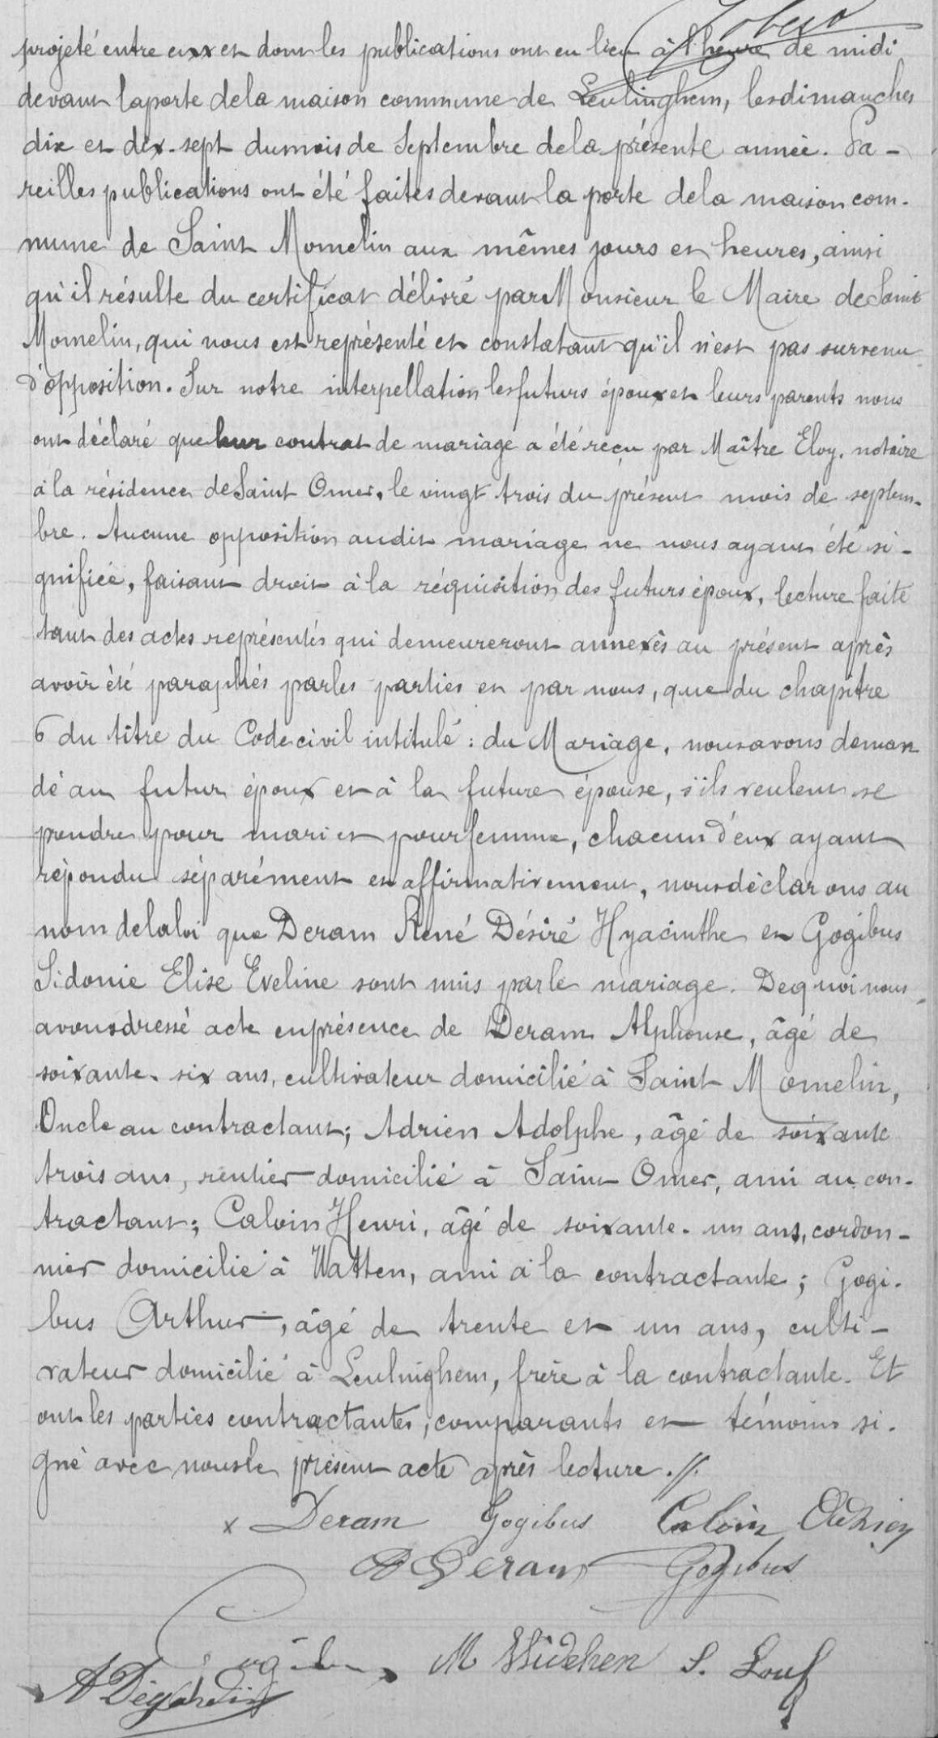 projeté entre eux et dont les publications ont eu lieu à l'heure de midi
devant la porte de la maison commune de Leulinghem, les dimanches
dix et dix-sept du mois de Septembre de la présente année. Pa-
reilles publications ont été faites devant la porte de la maison com-
mune de Saint Momelin aux mêmes jours et heures, ainsi
qu'il résulte du certificat délivré par Monsieur le Maire de Saint
Momelin, qui nous est représenté et constatant qu'il n'est pas survenu
d'opposition. Sur notre interpellation les futurs époux et leurs parents nous
ont déclaré que leur contrat de mariage a été reçu par Maître Eloy, notaire
à la résidence de Saint Omer, le vingt trois du présent mois de septem-
bre. Aucune opposition audit mariage ne nous ayant été si-
gnifiée, faisant droit à la réquisition des futurs époux, lecture faite
tant des actes représentés qui demeureront annexés au présent après
avoir été paraphés par les parties et par nous, que du chapitre
6 du titre du Code civil intitulé : du Mariage, nous avons deman
dé au futur époux et à la future épouse, s'ils veulent se
prendre pour mari et pour femme, chacun d'eux ayant
répondu séparément et affirmativement, nous déclarons au
nom de la loi que Deram René Désiré Hyacinthe et Gogibus
Sidonie Elise Eveline sont unis par le mariage. De quoi nous
avons dressé acte en présence de Deram Alphonse, âgé de
soixante-six ans, cultivateur domicilié à Saint Momelin,
Oncle au contractant; Adrien Adolphe, âgé de soixante
trois ans, rentier domicilié à Saint Omer, ami au con-
tractant; Calvin Henri, âgé de soixante-un ans, cordon-
nier domicilié à Watten, ami à la contractante; Gogi-
bus Arthur, âgé de trente et un ans, culti-
vateur domicilié à Leulinghem, frère à la contractante. Et
ont les parties contractantes, comparants et témoins si-
gné avec nous le présent acte après lecture.//.
x Deram Gogibus Calvin Adrien
A Deram Gogibus
M Widehen S. Louf
A Degardin